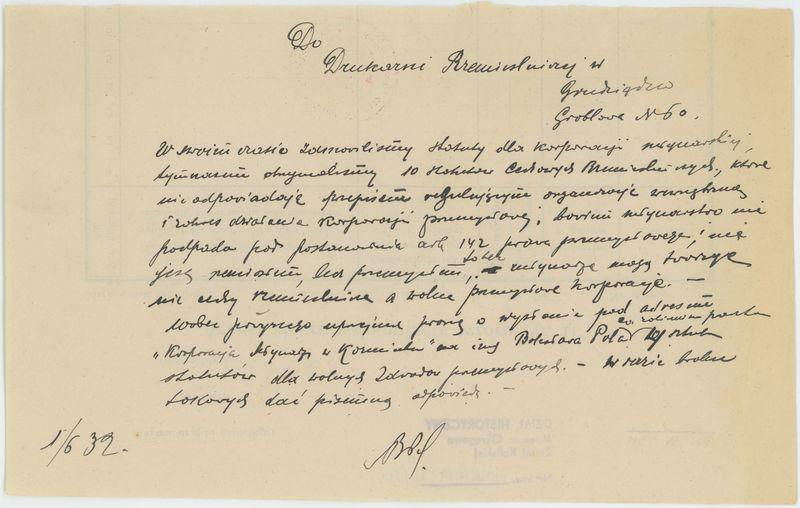 Do
Drukarni Rzemieślniczej w
Grudziądzu
Groblowa N 60.
W swoim czasie zamówiliśmy statuty dla korporacji młynarskiej,
tymczasem otrzymaliśmy 10 statutów Cechowych Rzemieślniczych, które
nie odpowiadają przepisom regulującym organizację wewnętrzną
i zakres działania korporacji przemysłowej, bowiem młynarstwo nie
podpada pod postanowienia art. 142 prawa przemysłowego, i nie
jest rzemiosłem, lecz przemysłem, zatem młynarze mogą tworzyć
nie cechy rzemieślnicze a wolne przemysłowe korporacje. —
Wobec powyższego uprzejmie proszę o wysłanie pod adresem
„Korporacja Młynarzy w Koninie" na imię Bolesława za zaliczeniem sztuk
statutów dla wolnych Zawodów przemysłowych. — W razie braku
takowych dać pisemną odpowiedź. —
1/6 32.
DZIAŁ HISTORYCZNY
Muzeum Okręgowe
Ziemi Kaliskiej